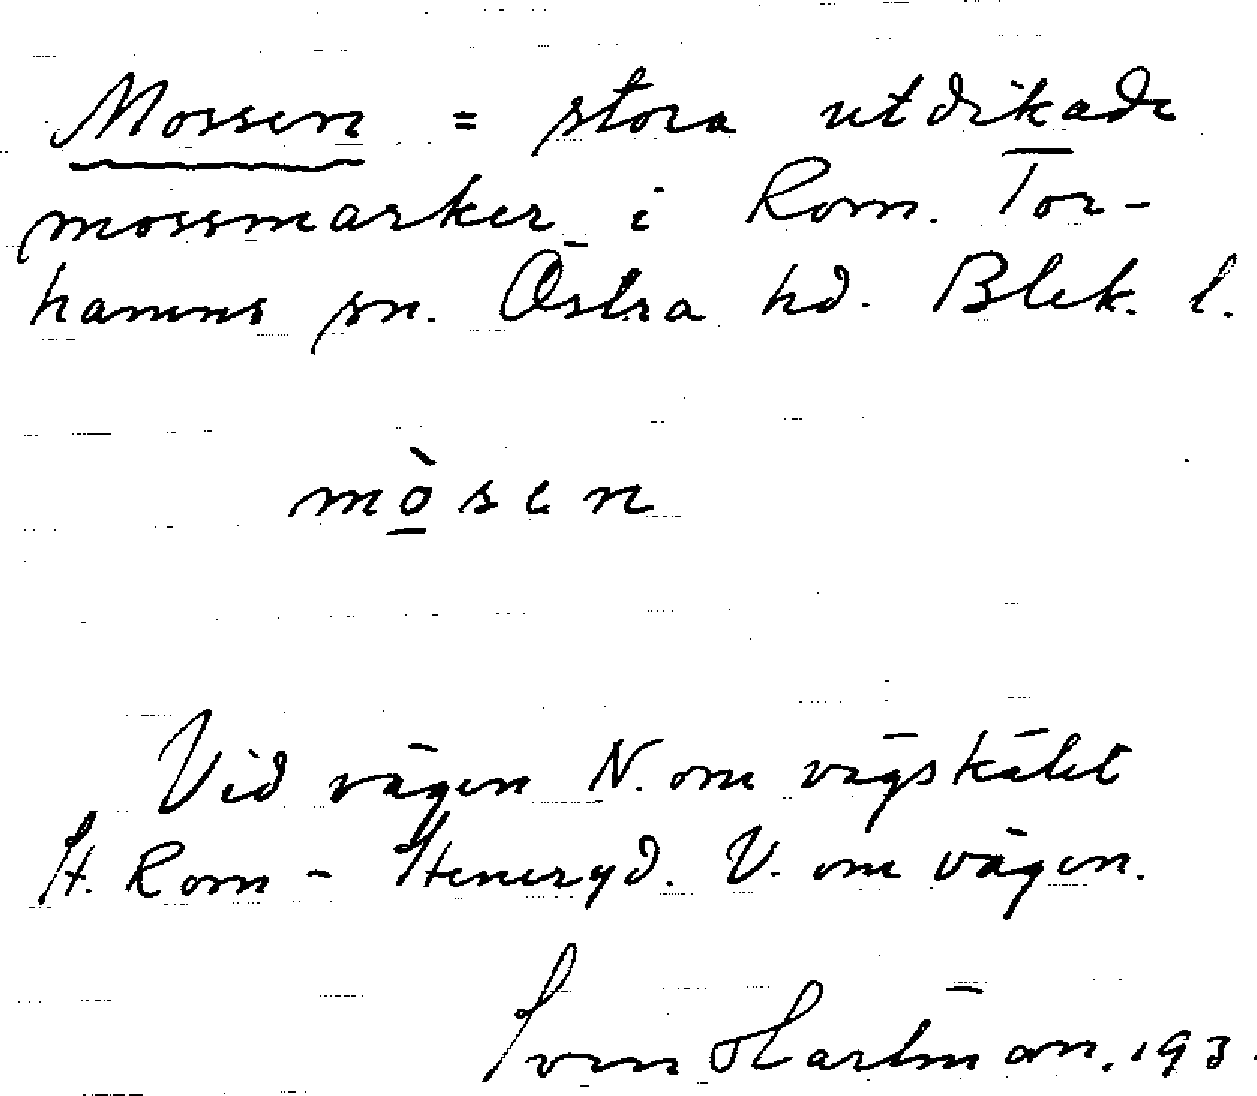 Mossen = stora utdikade
mossmarker i Rom. Tor-
hamns sn. Östra hd. Blek. l.
mò̲sen
Vid vägen N. om vägskälet
St. Rom - Steneryd. V. om vägen.
Sven Hartman. 193